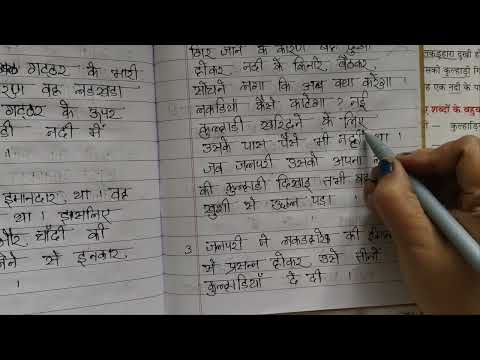 गट्ठर के भारी
वह लड़खड़ा
गट्ठर के ऊपर
नदी में
ईमानदार था । वह
था । इसलिए
और चाँदी की
लेने से इनकार
।
गिर जाने के कारण वह दुखी
होकर नदी के किनारे बैठकर
सोचने लगा कि अब क्या करेगा ।
लकड़ियाँ कैसे काटेगा ? नई
कुल्हाड़ी खरीदने के लिए
उसके पास पैसे भी नहीं था ।
जब जलपरी उसको अपनी
की कुल्हाड़ी दिखाई तभी वह
खुशी से उछल पड़ा ।
3 जलपरी ने लकड़हारे की
से प्रसन्न होकर उसे तीनों
कुल्हाड़ियाँ दे दी ।
लकड़हारा दुखी हो
उसकी कुल्हाड़ी गि
वह एक नदी के पा
शब्दों के बहुव
— कुल्हाड़ि